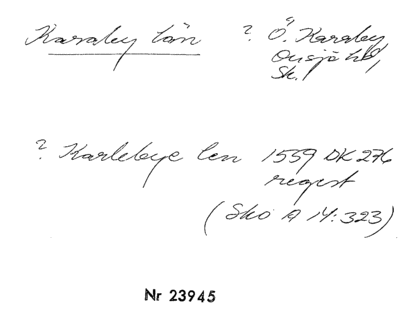 Karaby län ? Ö. Karaby
Onsjö hd,
Sk.
? Karlebye len 1559 DK 276
regest
(Sko A 14:323)
Nr 23945